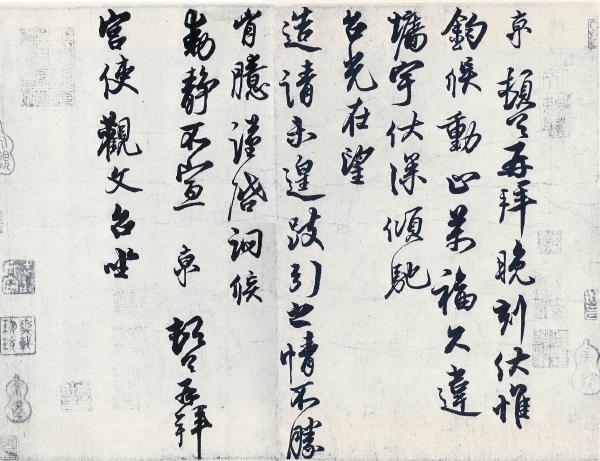 京頓首再拜晚刻伏惟
鈞候動止萬福久違
墻宇伏深傾馳
台光在望
造請未遑跂引之情不勝
胷臆謹啓詞候
動靜不宣 京頓首再拜
宮使觀文台坐